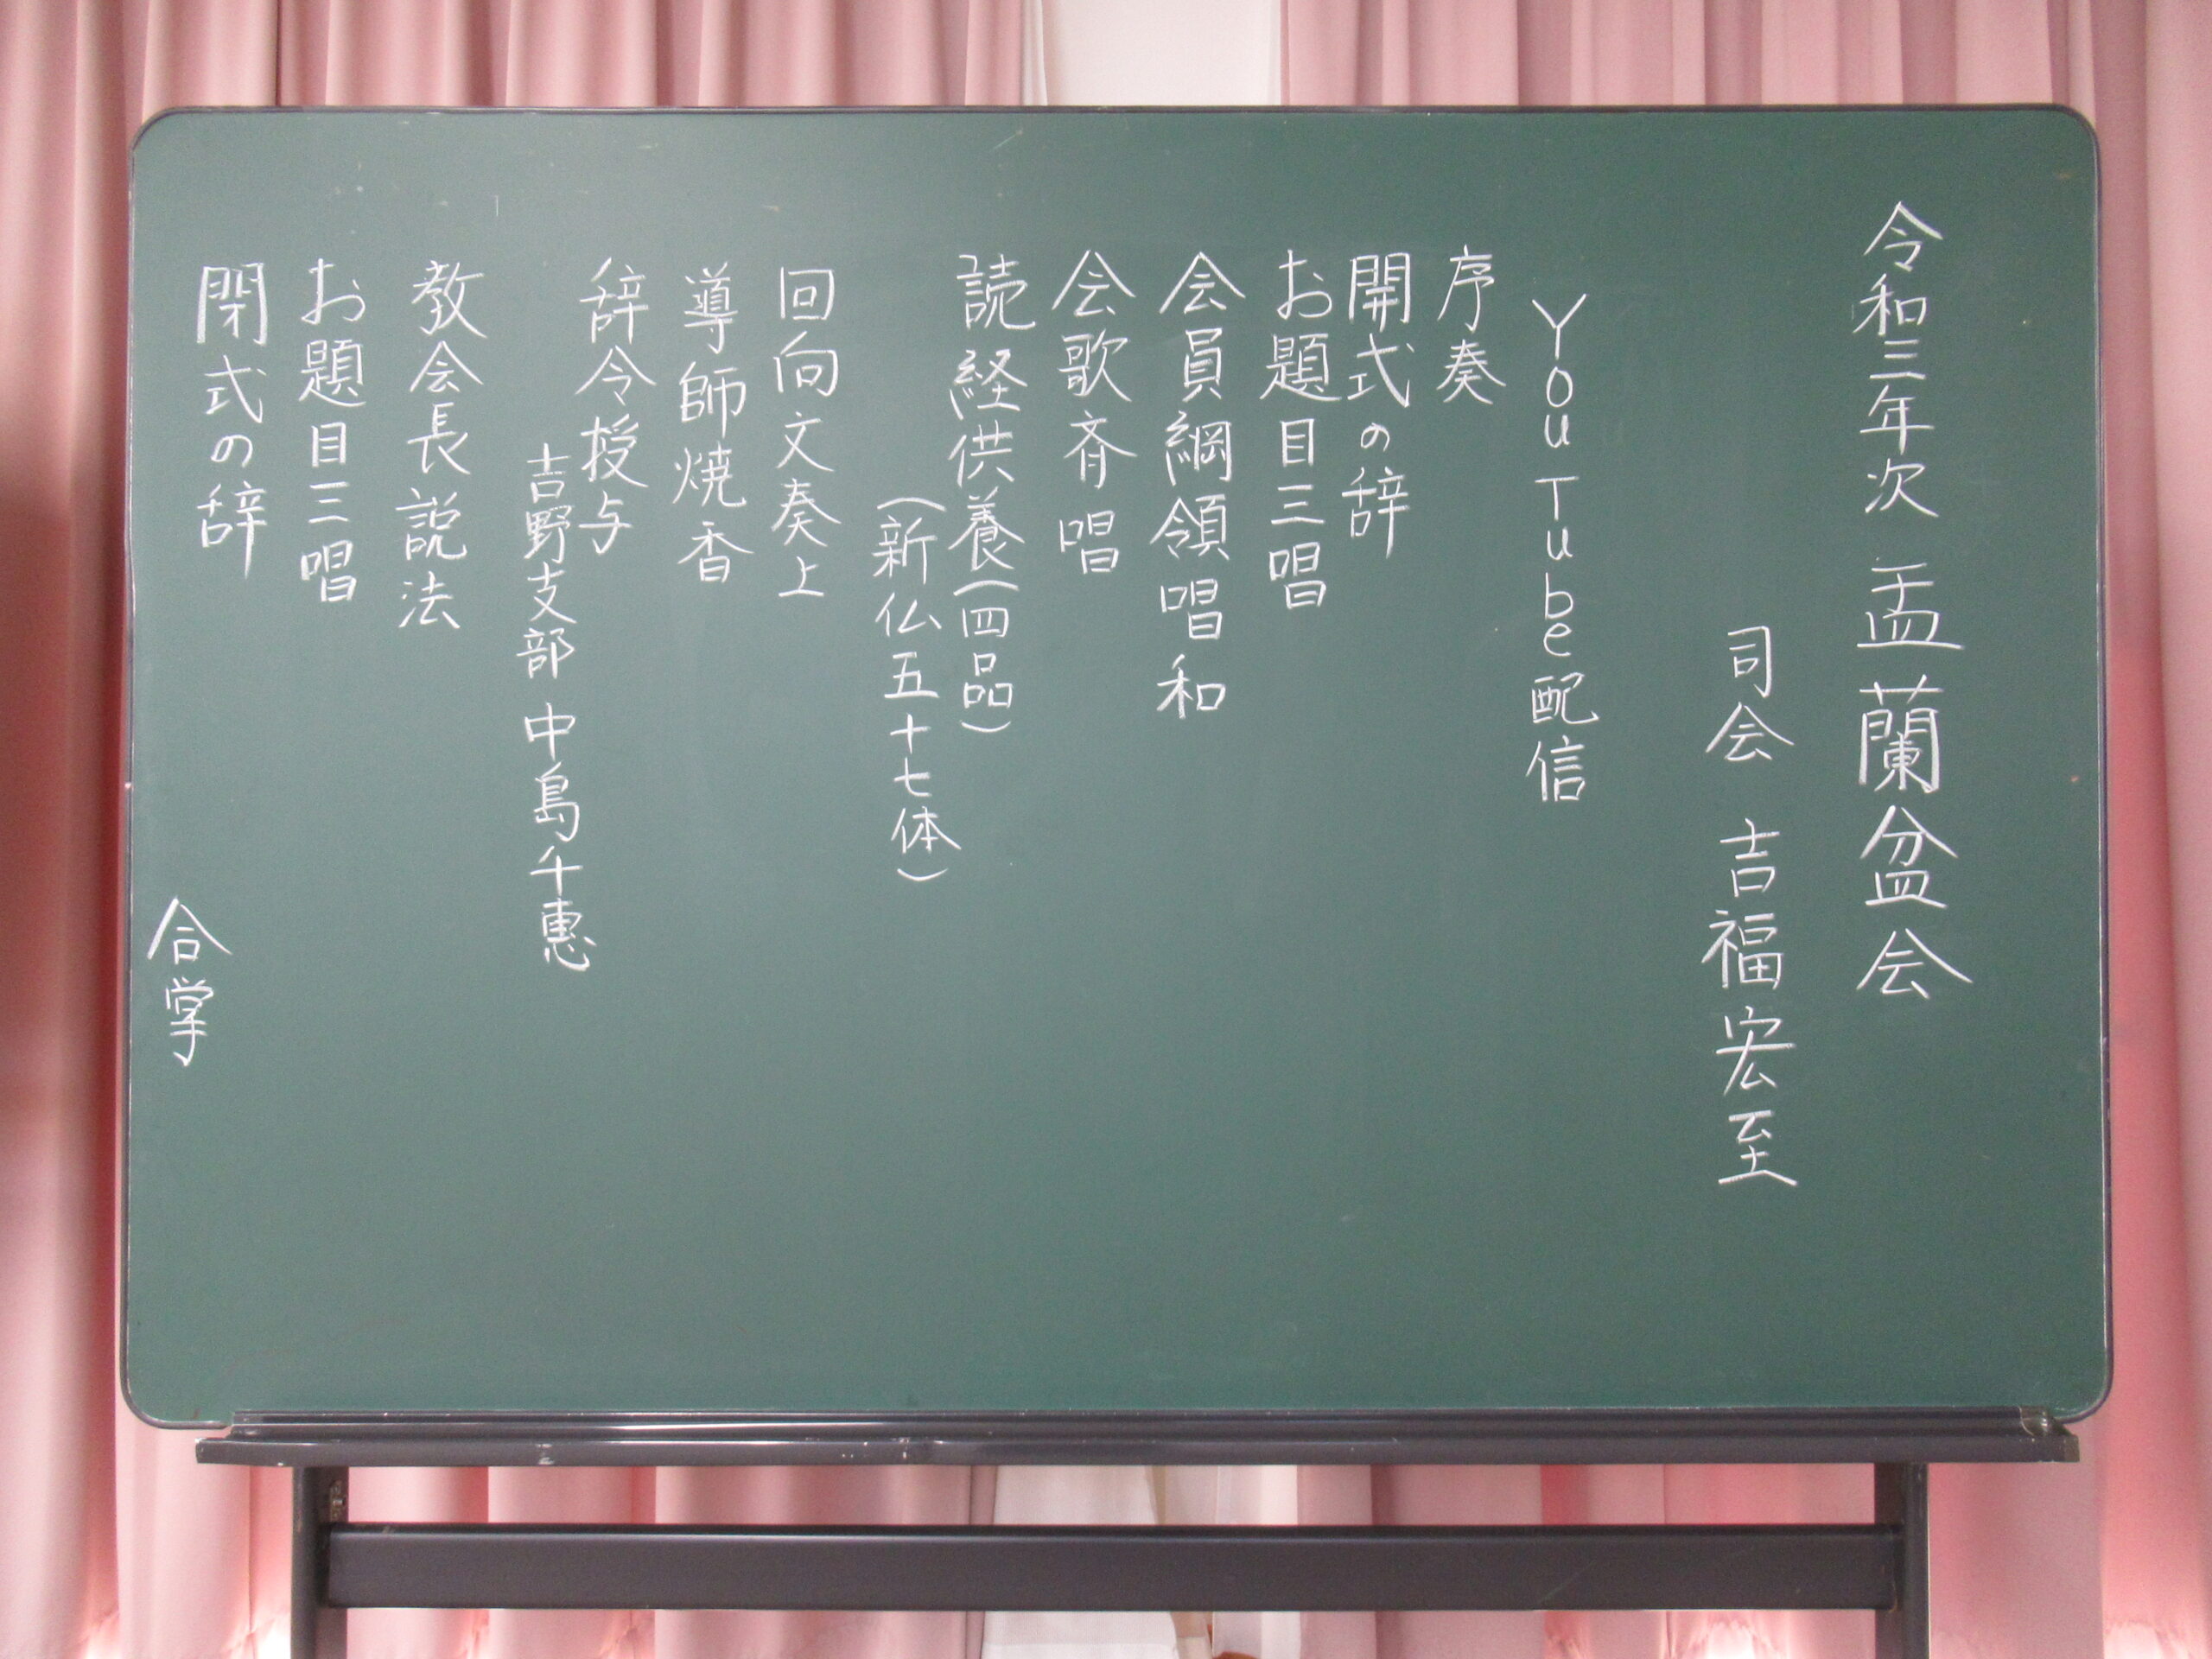 令和三年次 盂蘭盆会
司会 吉福宏至
YouTube配信
序奏
開式の辞
お題目三唱
会員綱領唱和
会歌斉唱
読経供養(四品)
(新仏五十七体)
回向文奏上
導師焼香
辞令授与
吉野支部 中島千恵
教会長説法
お題目三唱
閉式の辞
合掌